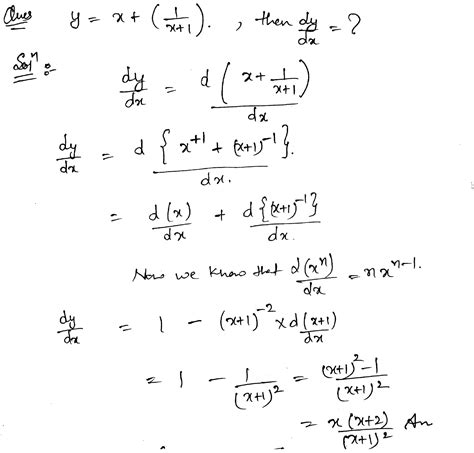 Ques y = x + (1/(x+1)). , then dy/dx = ?
Solⁿ :- dy/dx = d(x + 1/(x+1))/dx
dy/dx = d{x⁺¹ + (x+1)⁻¹}./dx.
= d(x)/dx + d{(x+1)⁻¹}/dx.
Now we know that d(xⁿ)/dx = nxⁿ⁻¹.
dy/dx = 1 - (x+1)⁻² × d(x+1)/dx
= 1 - 1/(x+1)² = ((x+1)² - 1)/(x+1)²
= x(x+2)/(x+1)² An